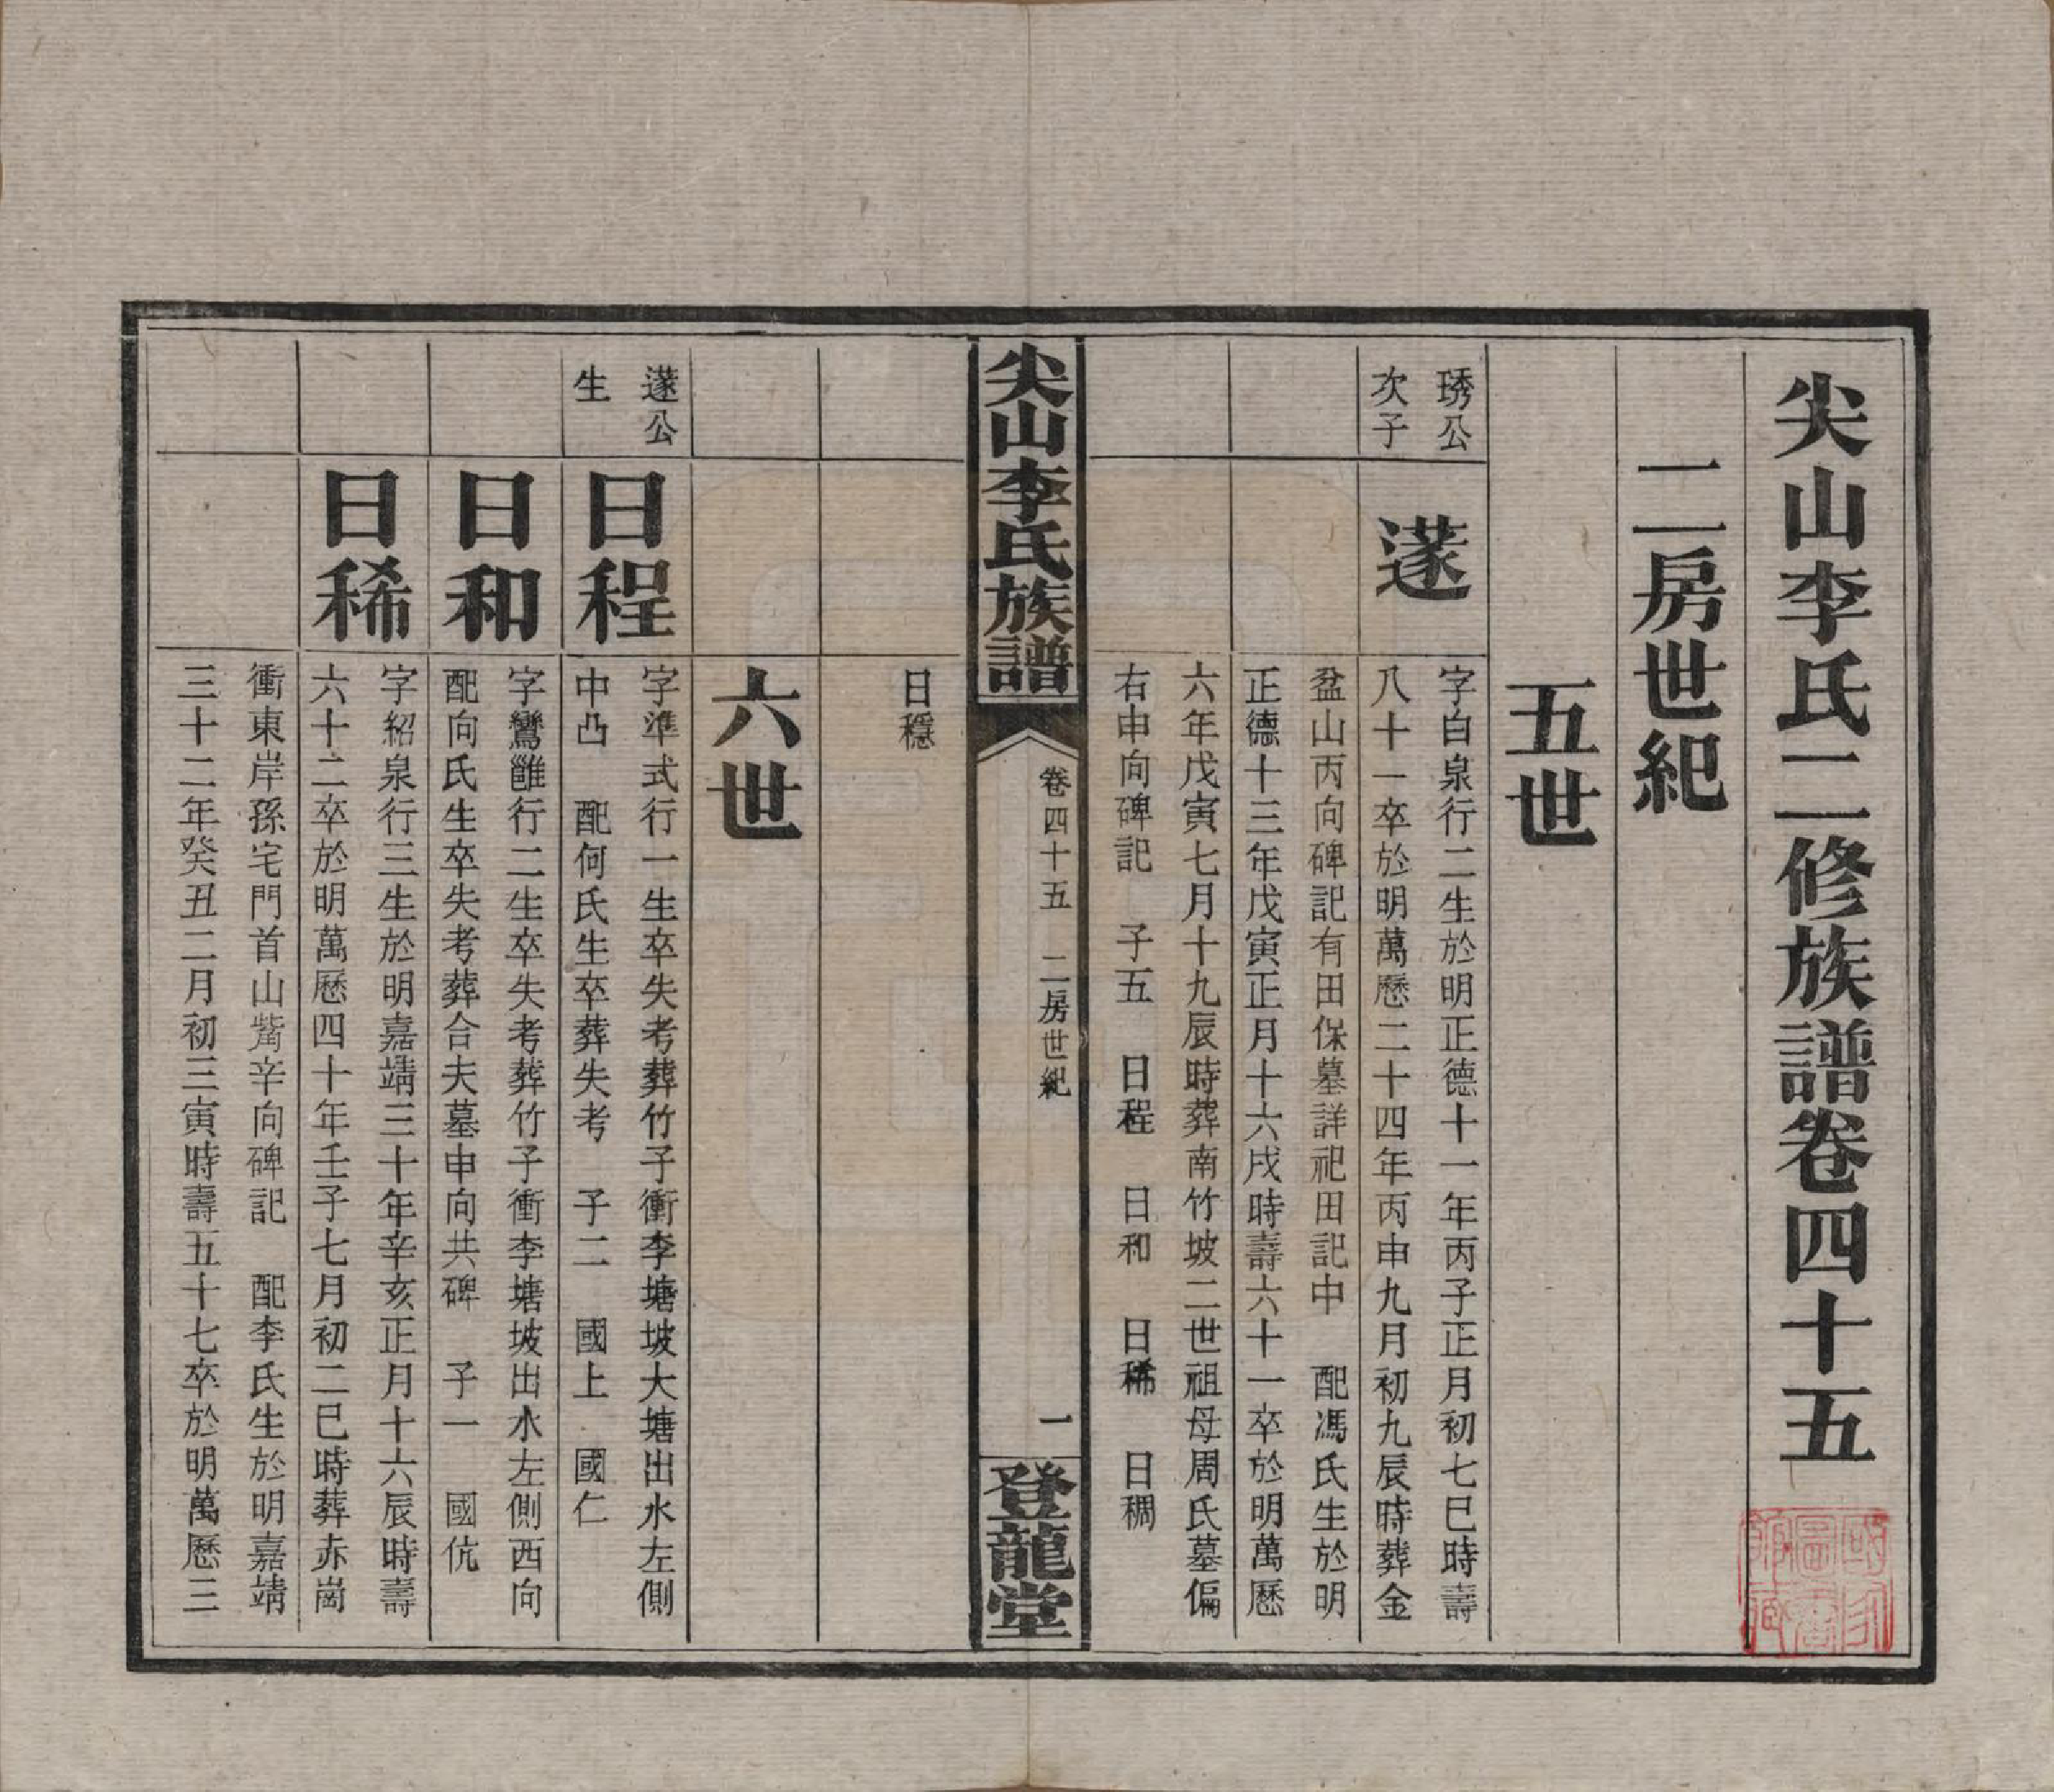 尖山李氏二修族譜卷四十五
二房世紀
五世
琇公
次子
蓫
字白泉行二生於明正德十一年丙子正月初七巳時壽
八十一卒於明萬歷二十四年丙申九月初九辰時葬金
盆山丙向碑記有田保墓詳祀田記中　配馮氏生於明
正德十三年戊寅正月十六戌時壽六十一卒於明萬歷
六年戊寅七月十九辰時葬南竹坡二世祖母周氏墓偏
右申向碑記　子五　日程　日和　日稀　日稠
尖山李氏族譜
卷四十五　二房世紀
一
登龍堂
日穩
六世
蓫公
生
日程
字準式行一生卒失考葬竹子衝李塘坡大塘出水左側
中凸　配何氏生卒葬失考　子二　國上　國仁
日和
字鸞雝行二生卒失考葬竹子衝李塘坡出水左側西向
配向氏生卒失考葬合夫墓申向共碑　子一　國伉
日稀
字紹泉行三生於明嘉靖三十年辛亥正月十六辰時壽
六十二卒於明萬歷四十年壬子七月初二巳時葬赤崗
衝東岸孫宅門首山觜辛向碑記　配李氏生於明嘉靖
三十二年癸丑二月初三寅時壽五十七卒於明萬歷三